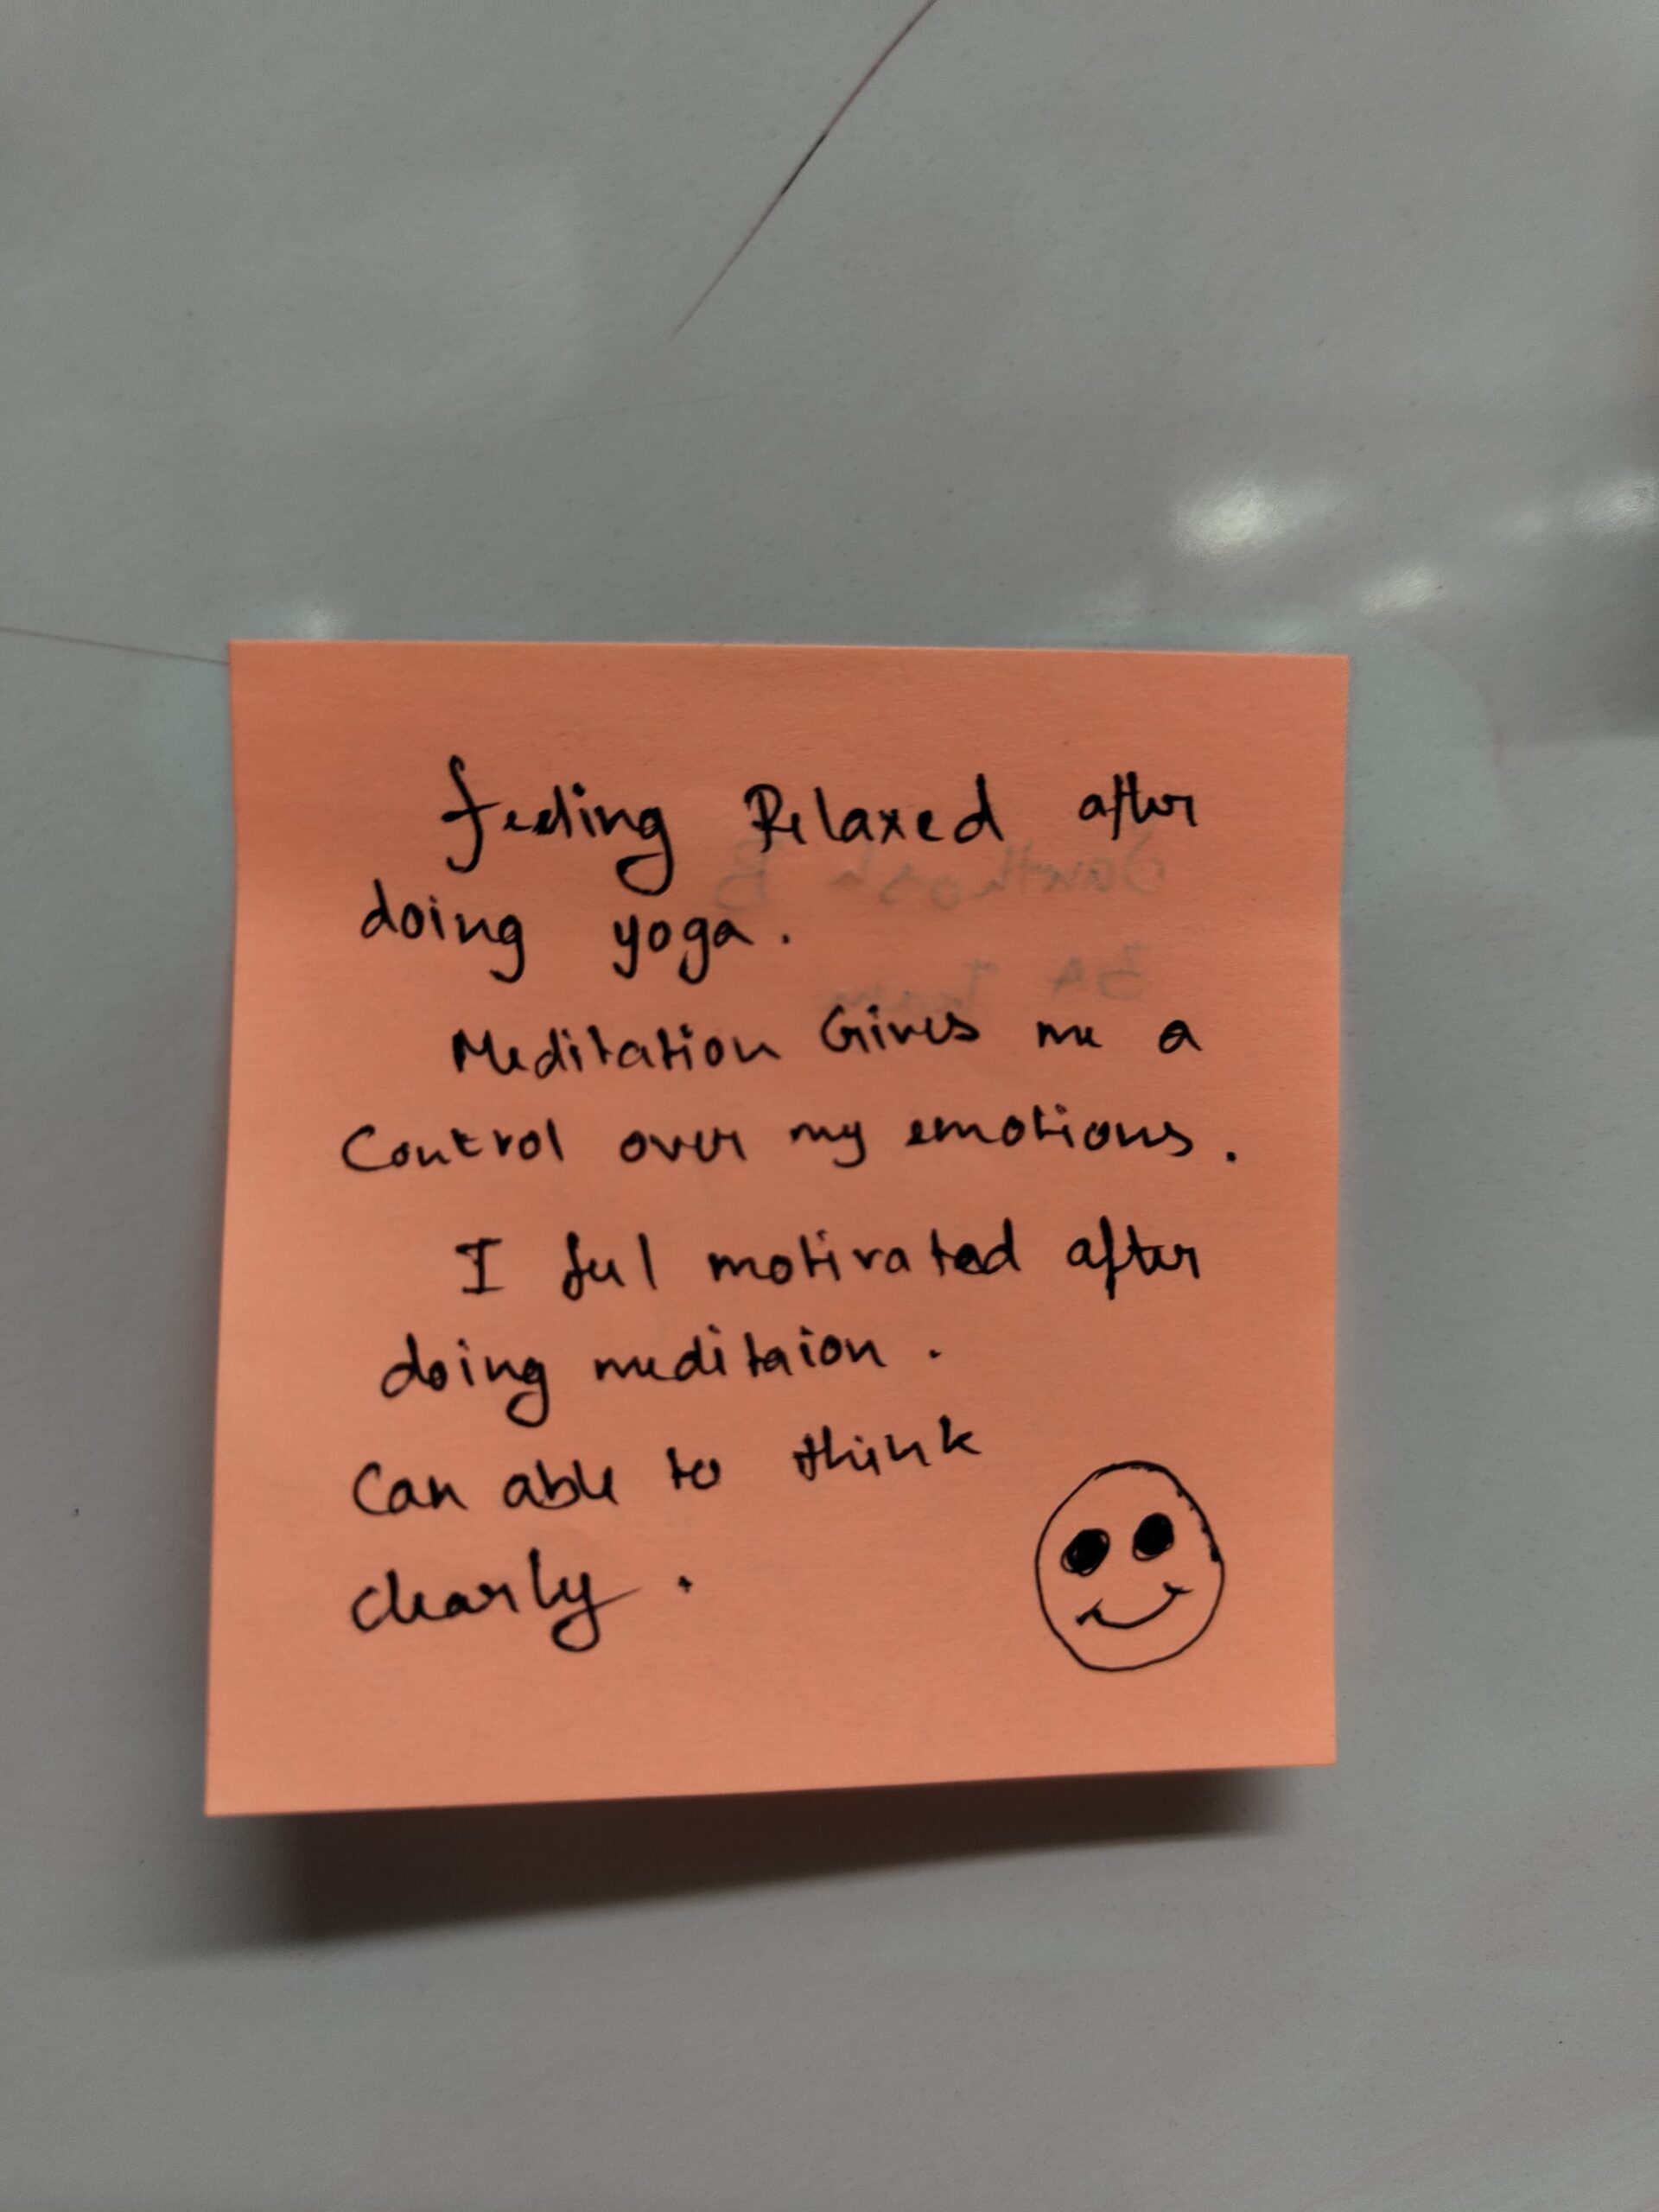 feeling Relaxed after
doing yoga.
Meditation Gives me a
Control over my emotions.
I feel motivated after
doing meditaion.
Can able to think
clearly.